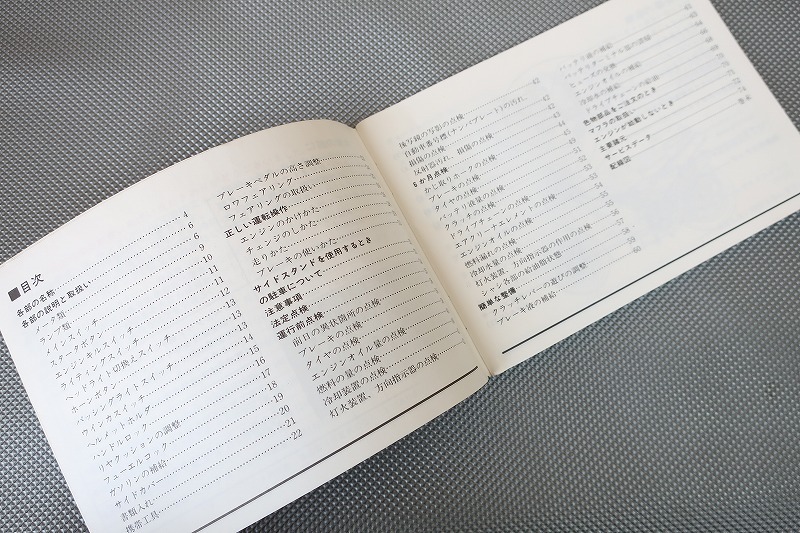 ■目次
各部の名称 4
各部の説明と取扱い 6
メータ類 6
ランプ類 9
メインスイッチ 10
スタータボタン 11
エンジンキルスイッチ 11
ライティングスイッチ 12
ヘッドライト切換えスイッチ 13
ホーンボタン 13
パッシングライトスイッチ 13
ウインカスイッチ 14
ヘルメットホルダ 16
ハンドルロック 17
リヤクッションの調整 18
フューエルコック 19
ガソリンの補給 20
サイドカバー 21
書類入れ 22
携帯工具
ブレーキペダルの高さ調整
ロワフェアリング
フェアリングの取扱い
正しい運転操作
エンジンのかけかた
チェンジのしかた
走りかた
ブレーキの使いかた
サイドスタンドを使用するとき
の駐車について
注意事項
法定点検
運行前点検
前日の異状箇所の点検
ブレーキの点検
タイヤの点検
エンジンオイル量の点検
燃料の量の点検
冷却装置の点検
灯火装置、方向指示器の点検
後写鏡の写影の点検 42
自動車番号標(ナンバプレート)の汚れ、
損傷の点検 42
反射器汚れ、損傷の点検 42
6か月点検 43
かじ取りホークの点検 44
ブレーキの点検 45
タイヤの点検 49
バッテリ液量の点検 51
クラッチの点検 52
ドライブチェーンの点検 53
エアクリーナエレメントの点検 54
エンジンオイルの点検 55
燃料漏れの点検 56
冷却水量の点検 57
灯火装置、方向指示器の作用の点検 58
シャシ各部の給油脂状態 58
簡単な整備 59
クラッチレバーの遊びの調整 59
ブレーキ液の補給 60
バッテリ液の補給
バッテリターミナル部の清掃
ヒューズの交換
エンジンオイルの補給
冷却水の補給
ドライブチェーンの給油
色物部品をご注文のとき
マフラの取扱い
エンジンが始動しないとき
主要諸元
サービスデータ
配線図